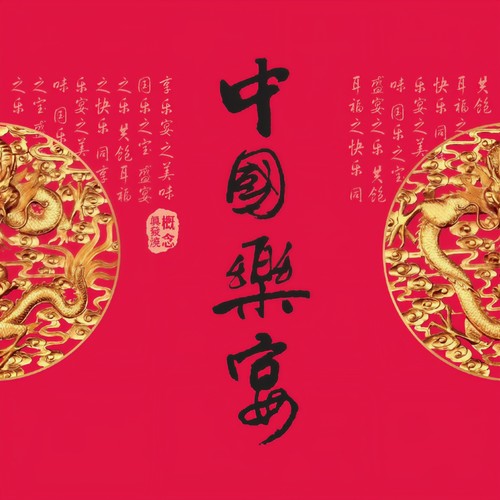 中國樂宴
享乐宴之美味
国乐之宝 盛宴
之乐 共饱耳福
之快乐 同享
乐宴之美
味 国乐
之宝 盛
之乐
概念
共饱
耳福之
快乐 同享
乐宴之美
味 国乐之宝
盛宴之乐 共饱
耳福之快乐 同